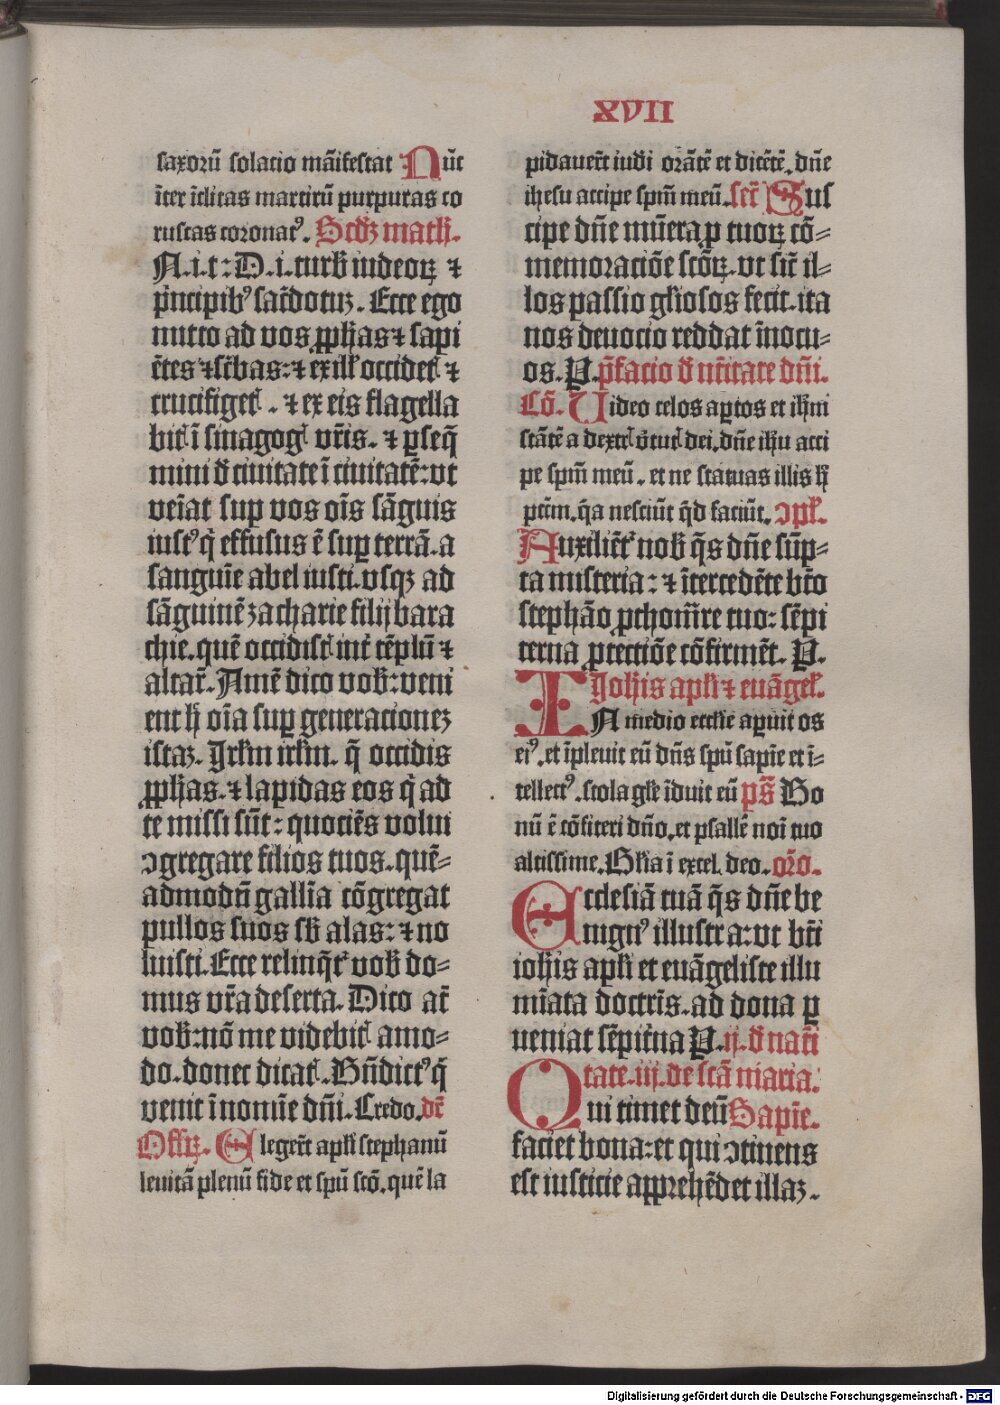 XVII
saxorū solacio māifestat Nūc
īter īclitas martirū purpuras co
ruscas coronatꝰ. Scd̄ꝫ math̄.
N.i.t: D.i. turb̄ iudeoꝝ ⁊
p̄ncipibꝰ sac̄dotuꝫ. Ecce ego
mitto ad vos ꝓph̄as ⁊ sapi
ētes ⁊ sc̄bas: ⁊ ex ill̄ occidetꝭ ⁊
crucifigetꝭ. ⁊ ex eis flagella
bitꝭ ī sinagogꝭ vr̄is. ⁊ ꝑseq̄
mini d̄ ciuitate ī ciuitatē: vt
veīat sup vos oīs sāguis
iustꝰ q̄ effusus ē sup terrā. a
sanguīe abel iusti. vsqꝫ ad
sāguinē zacharie filij bara
chie. quē occidistꝭ int̄ tēplū ⁊
altar̄. Amē dico vob̄: veni
ent h̄ oīa sup generacioneꝫ
istaꝫ. Jrl̄m irl̄m. q̄ occidis
ꝓph̄as. ⁊ lapidas eos q̄ ad
te missi sūt: quociēs volui
ↄgregare filios tuos. quē-
admodū gallīa cōgregat
pullos suos sb̄ alas: ⁊ no
luisti. Ecce relinq̄tꝭ vob̄ do-
mus vr̄a deserta. Dico at̄
vob̄: nō me videbitꝭ amo-
do. donec dicatꝭ. Bn̄dictꝰ q̄
venit ī nomīe dn̄i. Credo. dr̄
Offꝝ. Elegert̄ apl̄i stephanū
leuitā plenū fide et spū scō. quē la
pidauert̄ iudi orātē et dicētē. dn̄e
ihesu accipe spm̄ meū. secr̄ Sus
cipe dn̄e mūera ꝓ tuoꝝ cō-
memoraciōe scōꝝ. vt sic̄ il-
los passio gl̄iosos fecit. ita
nos deuocio reddat īnocu-
os. P. p̄facio d̄ nr̄itate dn̄i.
Cō. Uideo celos aptos et ih̄m
stātē a dextꝭ v̄tutꝭ dei. dn̄e ih̄u acci
pe spm̄ meū. et ne statuas illis h̄
pctm̄. q̄a nesciūt q̄d faciūt. ↄpl̄.
Auxiliēt̄ nob̄ q̄s dn̄e sūp-
ta misteria: ⁊ ītercedēte bt̄o
stephāo ꝓthom̄re tuo: sēpi
terna ꝓtectiōe cōfirmēt. P.
Joh̄is apl̄i ⁊ euāgel̄.
IN medio eccl̄ie apuit os
eiꝰ. et īpleuit eū dn̄s spū sapīe et ī-
tellectꝰ. stola gl̄e īduit eū ps̄ Bo
nū ē cōfiteri dn̄o. et psallē noī tuo
altissime. Gl̄ia ī excel. deo. or̄o.
Ecclesiā tuā q̄s dn̄e be
nignꝰ illustra: vt bt̄i
ioh̄is apl̄i et euāgeliste illu
mīata doctrīs. ad dona ꝑ
ueniat sēpit̄na P. ij. d̄ nat̄i
tate. iij. de scā maria.
Qui timet deū Sapīe.
faciet bona: et qui ↄtinens
est iusticie apprehēdet illaꝫ.
Digitalisierung gefördert durch die Deutsche Forschungsgemeinschaft - DFG